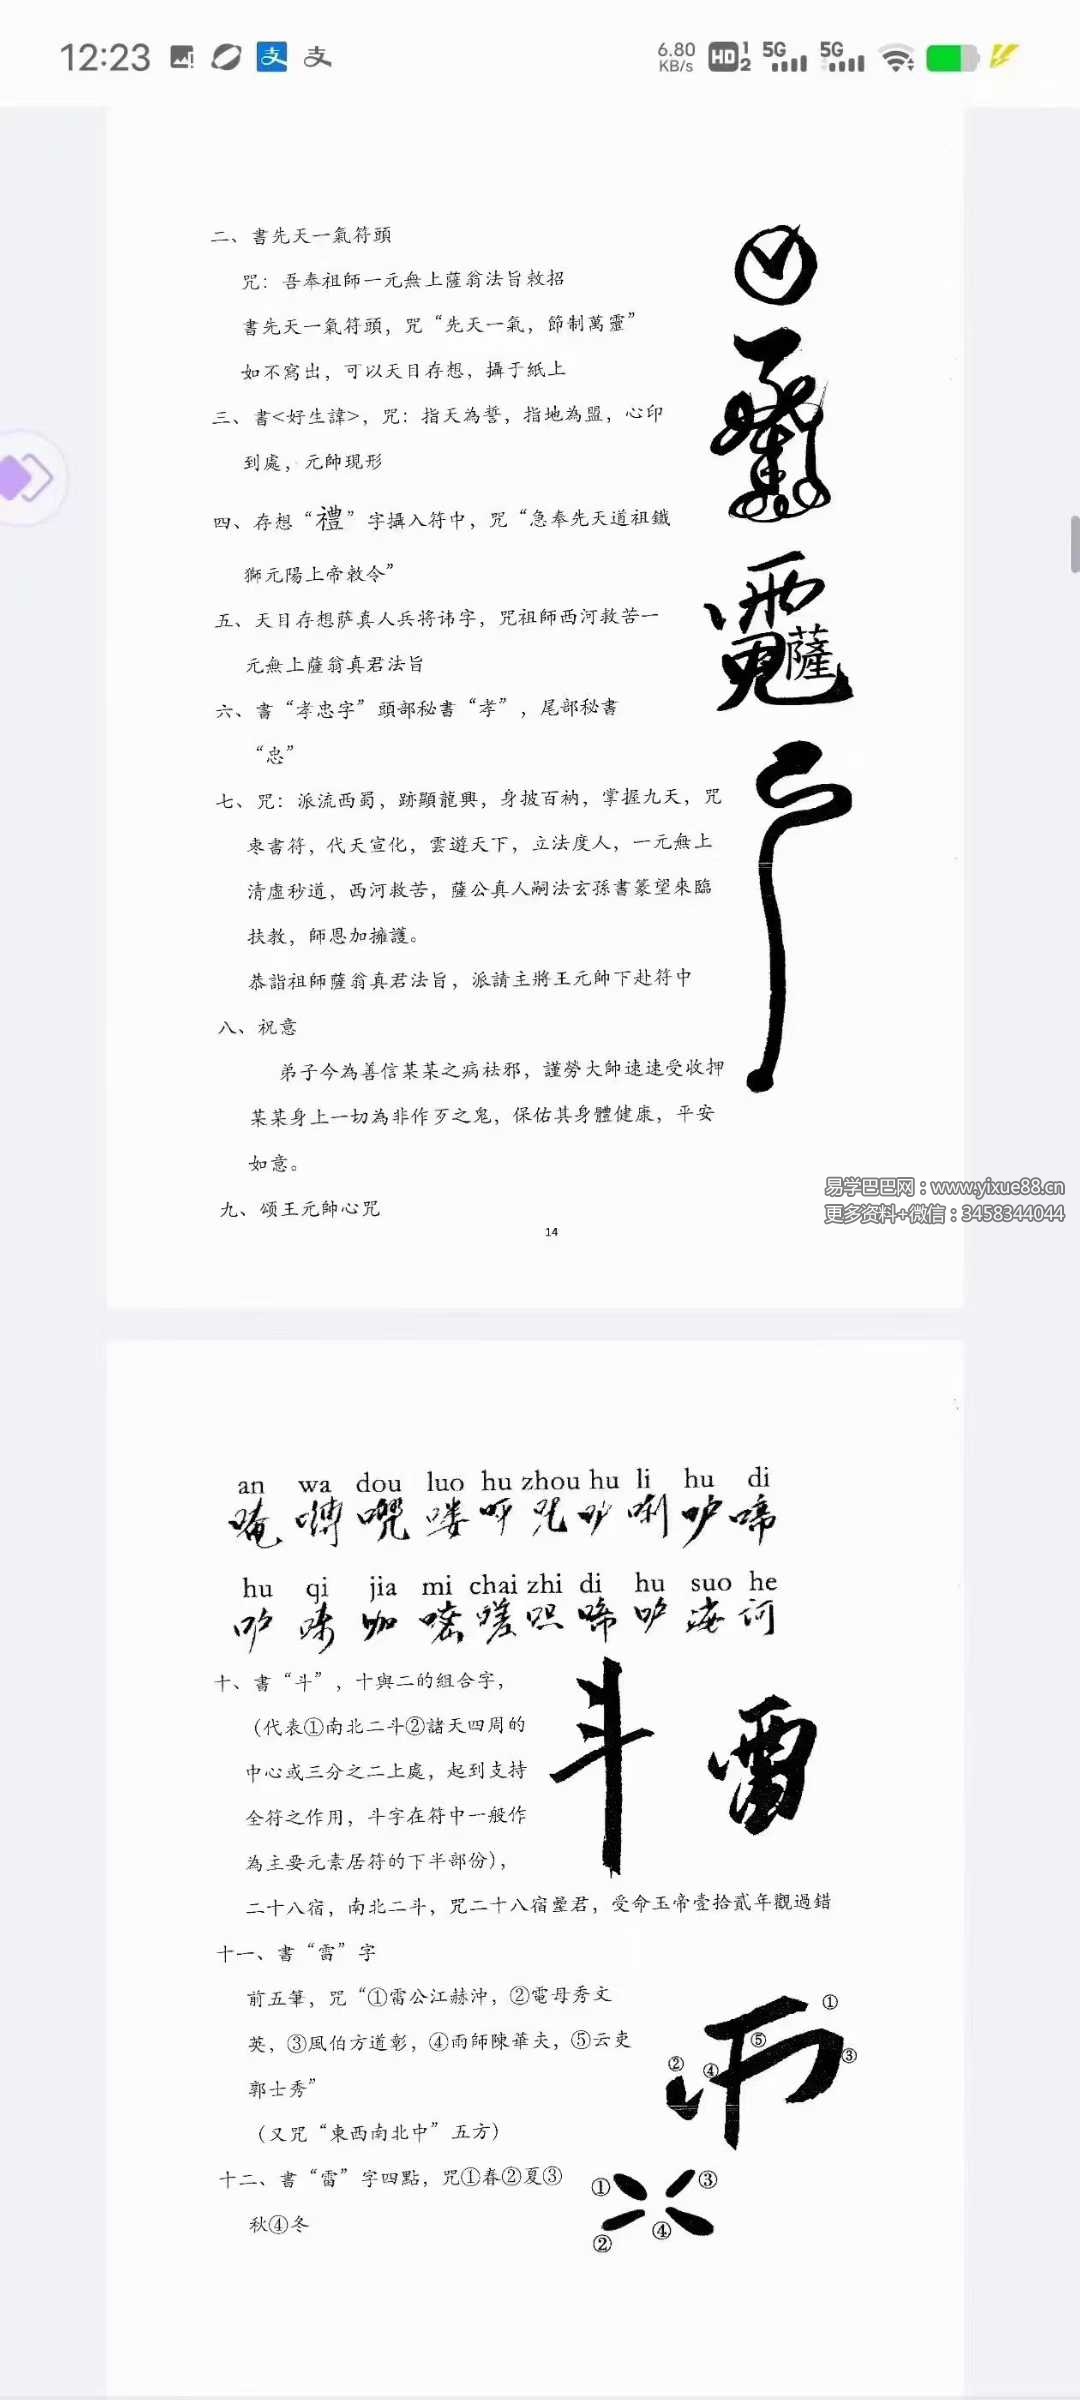 12:23
6.80 KB/s HD 1 2 5G 5G
二、書先天一氣符頭
咒：吾奉祖師一元無上薩翁法旨敕招
書先天一氣符頭，咒“先天一氣，節制萬靈”
如不寫出，可以天目存想，攝于紙上
三、書<好生諱>，咒：指天為誓，指地為盟，心印
到處，元帥現形
四、存想“禮”字攝入符中，咒“急奉先天道祖鐵
獅元陽上帝敕令”
五、天目存想萨真人兵将讳字，咒祖師西河救苦一
元無上薩翁真君法旨
六、書“孝忠字”頭部秘書“孝”，尾部秘書
“忠”
七、咒：派流西蜀，跡顯龍興，身披百衲，掌握九天，咒
枣書符，代天宣化，雲遊天下，立法度人，一元無上
清虛秒道，西河救苦，薩公真人嗣法玄孫書篆望來臨
扶教，師恩加擁護。
恭詣祖師薩翁真君法旨，派請主將王元帥下赴符中
八、祝意
弟子今為善信某某之病祛邪，謹勞大帥速速受收押
某某身上一切為非作歹之鬼，保佑其身體健康，平安
如意。
九、頌王元帥心咒
薩
易学巴巴网：www.yixue88.cn
更多资料+微信：3458344044
14
an wa dou luo hu zhou hu li hu di
hu qi jia mi chai zhi di hu suo he
十、書“斗”，十與二的組合字，
（代表①南北二斗②諸天四周的
中心或三分之二上處，起到支持
全符之作用，斗字在符中一般作
為主要元素居符的下半部份），
二十八宿，南北二斗，咒二十八宿星君，受命玉帝壹拾貳年觀過錯
斗
雷
十一、書“雷”字
前五筆，咒“①雷公江赫沖，②電母秀文
英，③風伯方道彰，④雨師陳華夫，⑤云吏
郭士秀”
（又咒“東西南北中”五方）
① ② ③ ④ ⑤
十二、書“雷”字四點，咒①春②夏③
秋④冬
① ② ③ ④